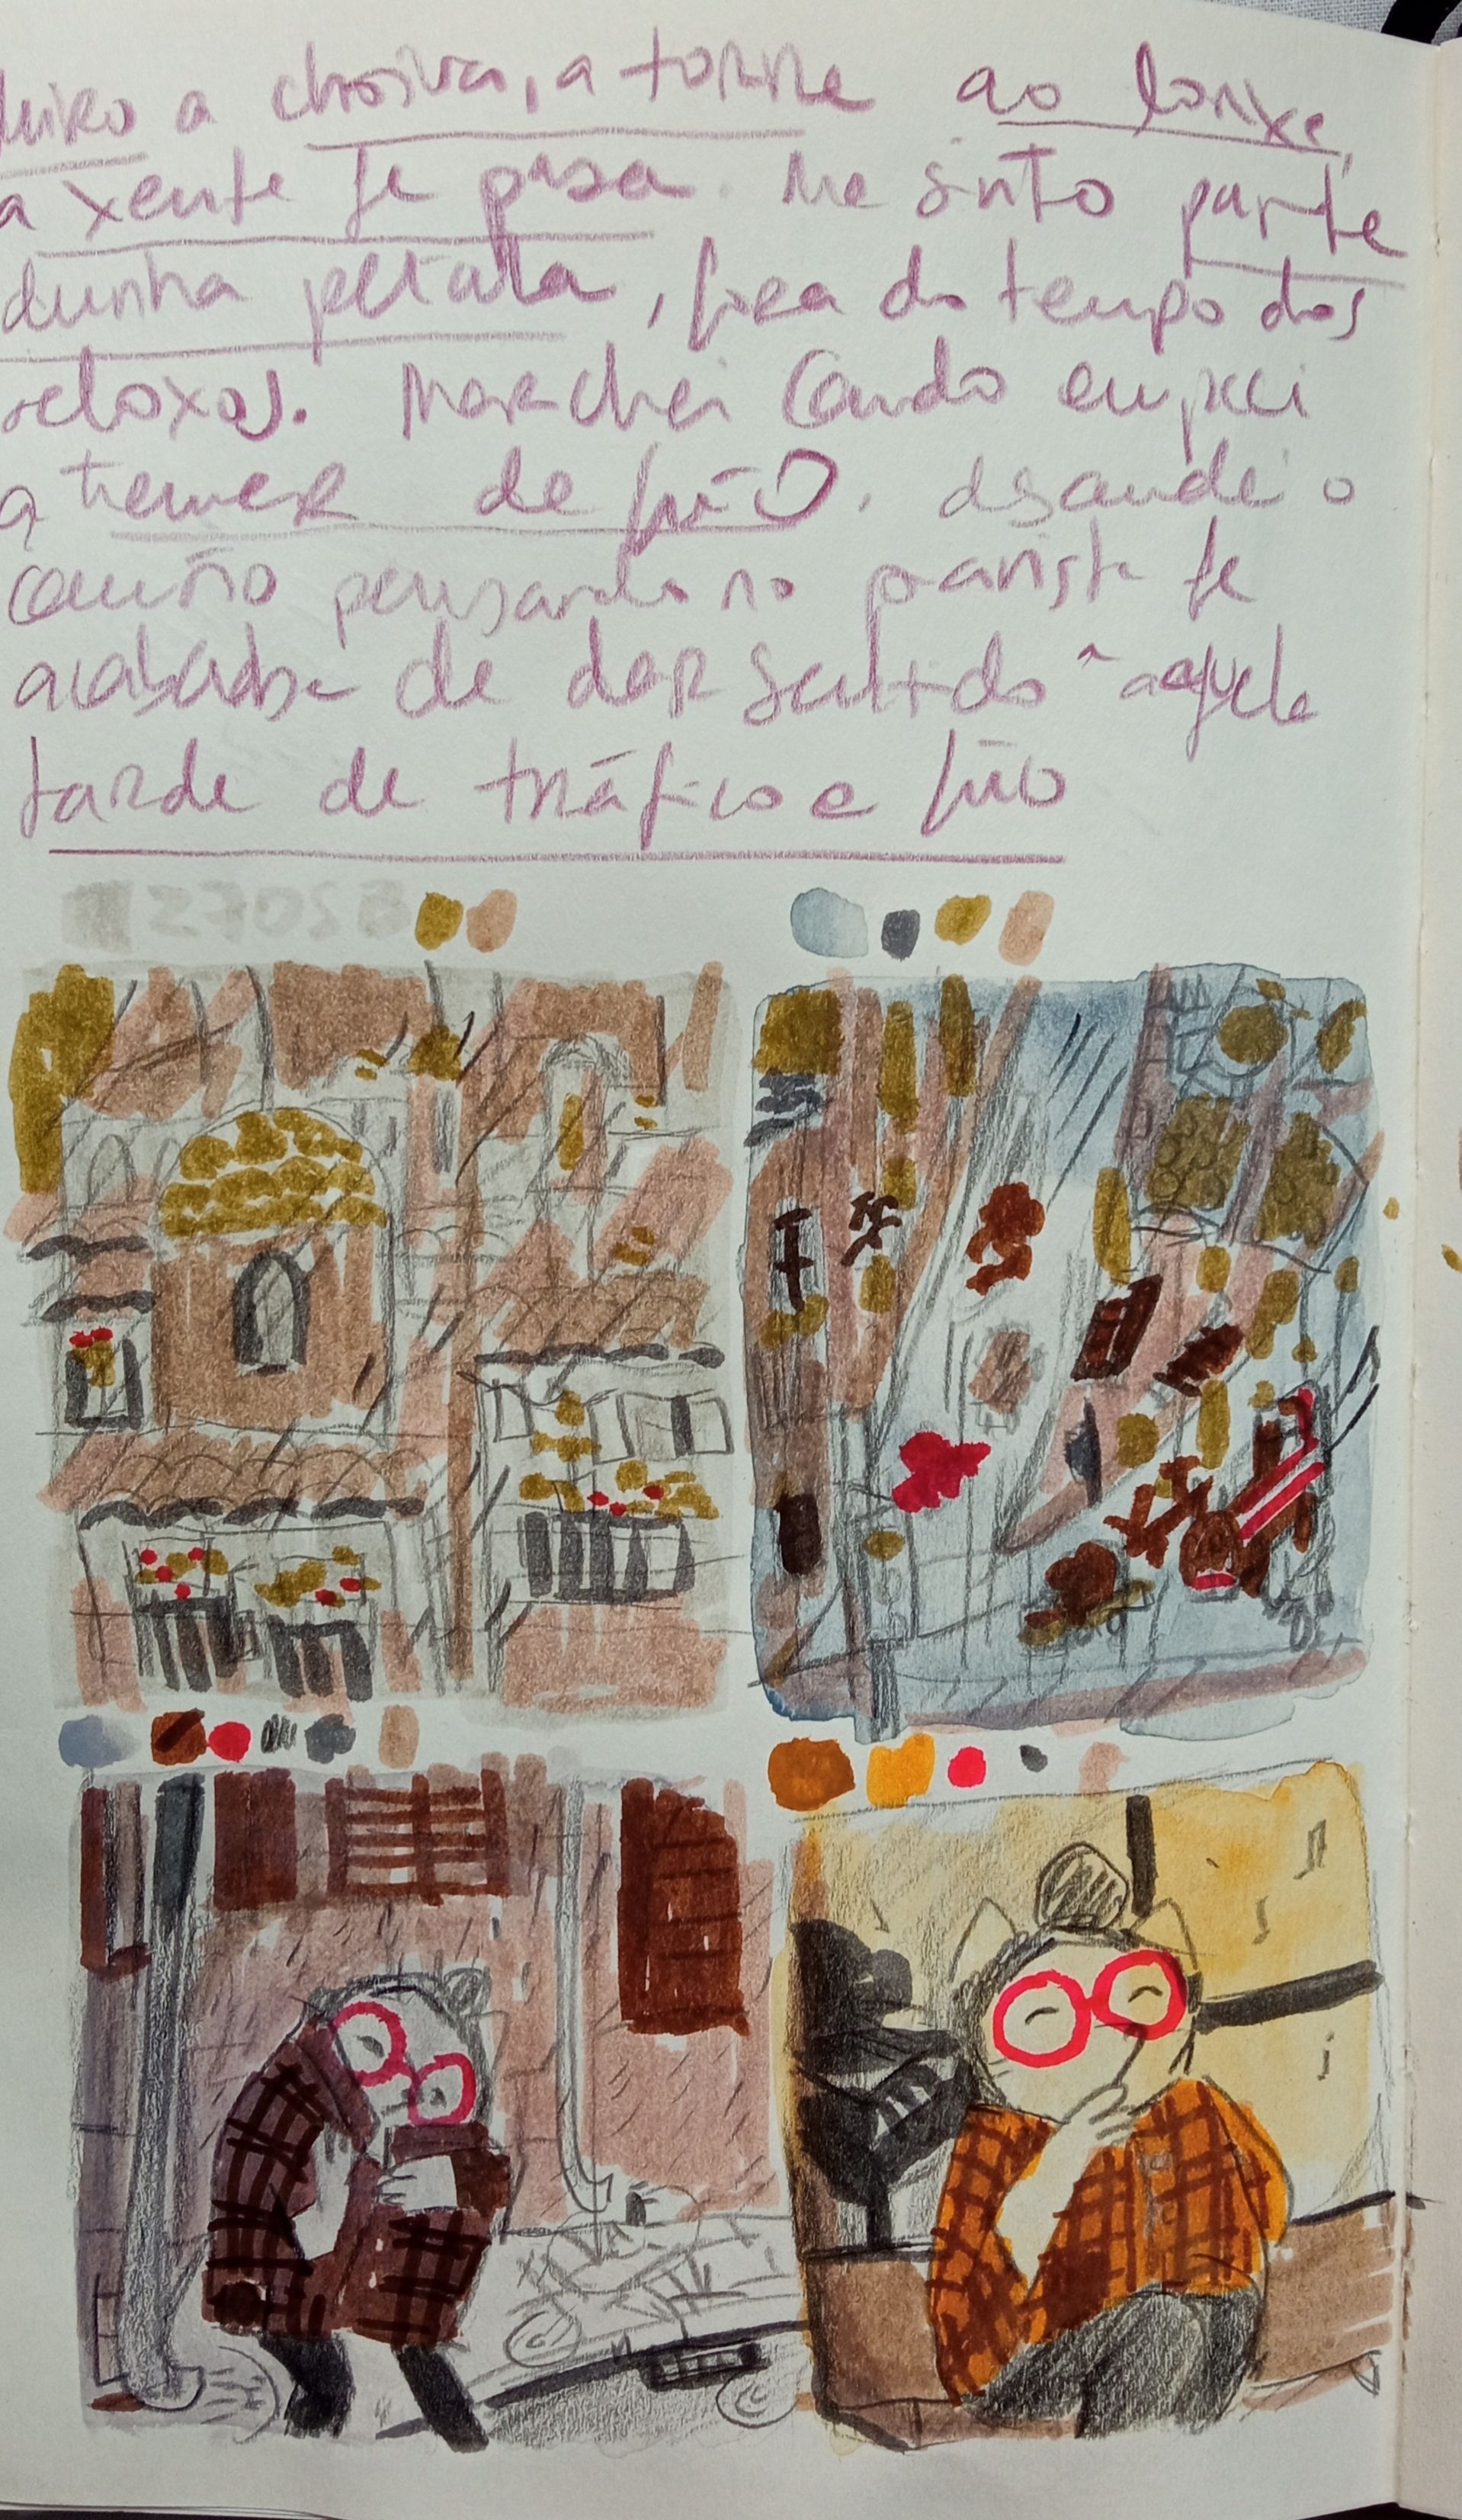 miro a choiva, a torre ao lonxe,
a xente que pasa. Me sinto parte
dunha pétala, fora do tempo dos
reloxos. Marchei cando empecei
a tremer de frío. desandei o
camiño pensando no pianista que
acababa de dar sentido a aquela
tarde de tráfico e frío
2705B